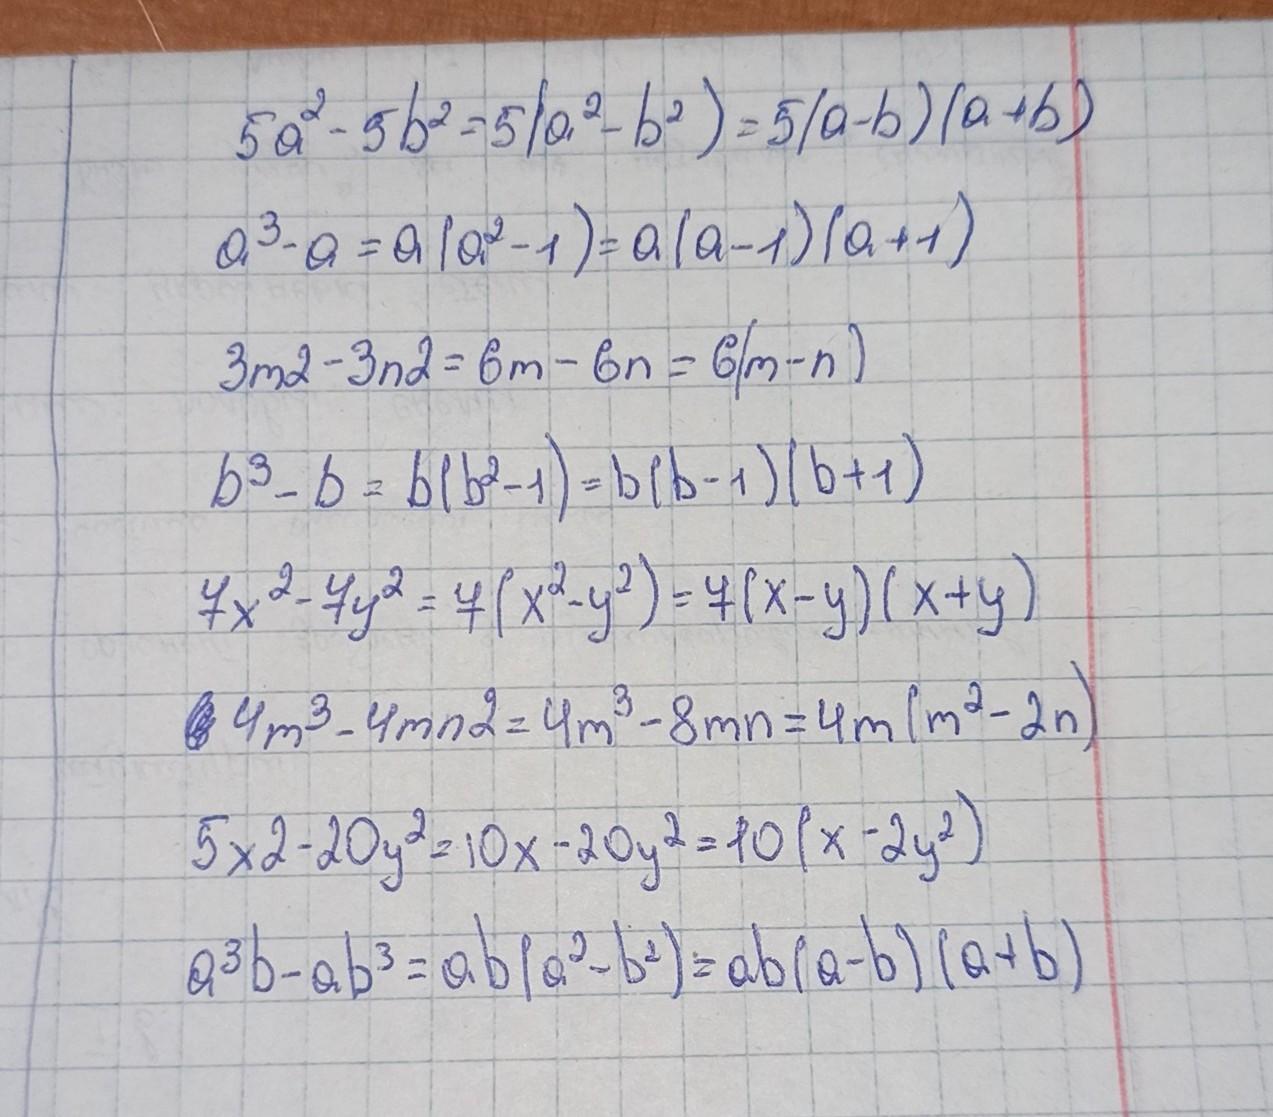 5a² - 5b² = 5(a² - b²) = 5(a-b)(a+b)
a³ - a = a(a² - 1) = a(a-1)(a+1)
3m2 - 3n2 = 6m - 6n = 6(m-n)
b³ - b = b(b²-1) = b(b-1)(b+1)
7x² - 7y² = 7(x²-y²) = 7(x-y)(x+y)
4m³ - 4mn2 = 4m³ - 8mn = 4m(m² - 2n)
5x2 - 20y² = 10x - 20y² = 10(x - 2y²)
a³b - ab³ = ab(a²-b²) = ab(a-b)(a+b)